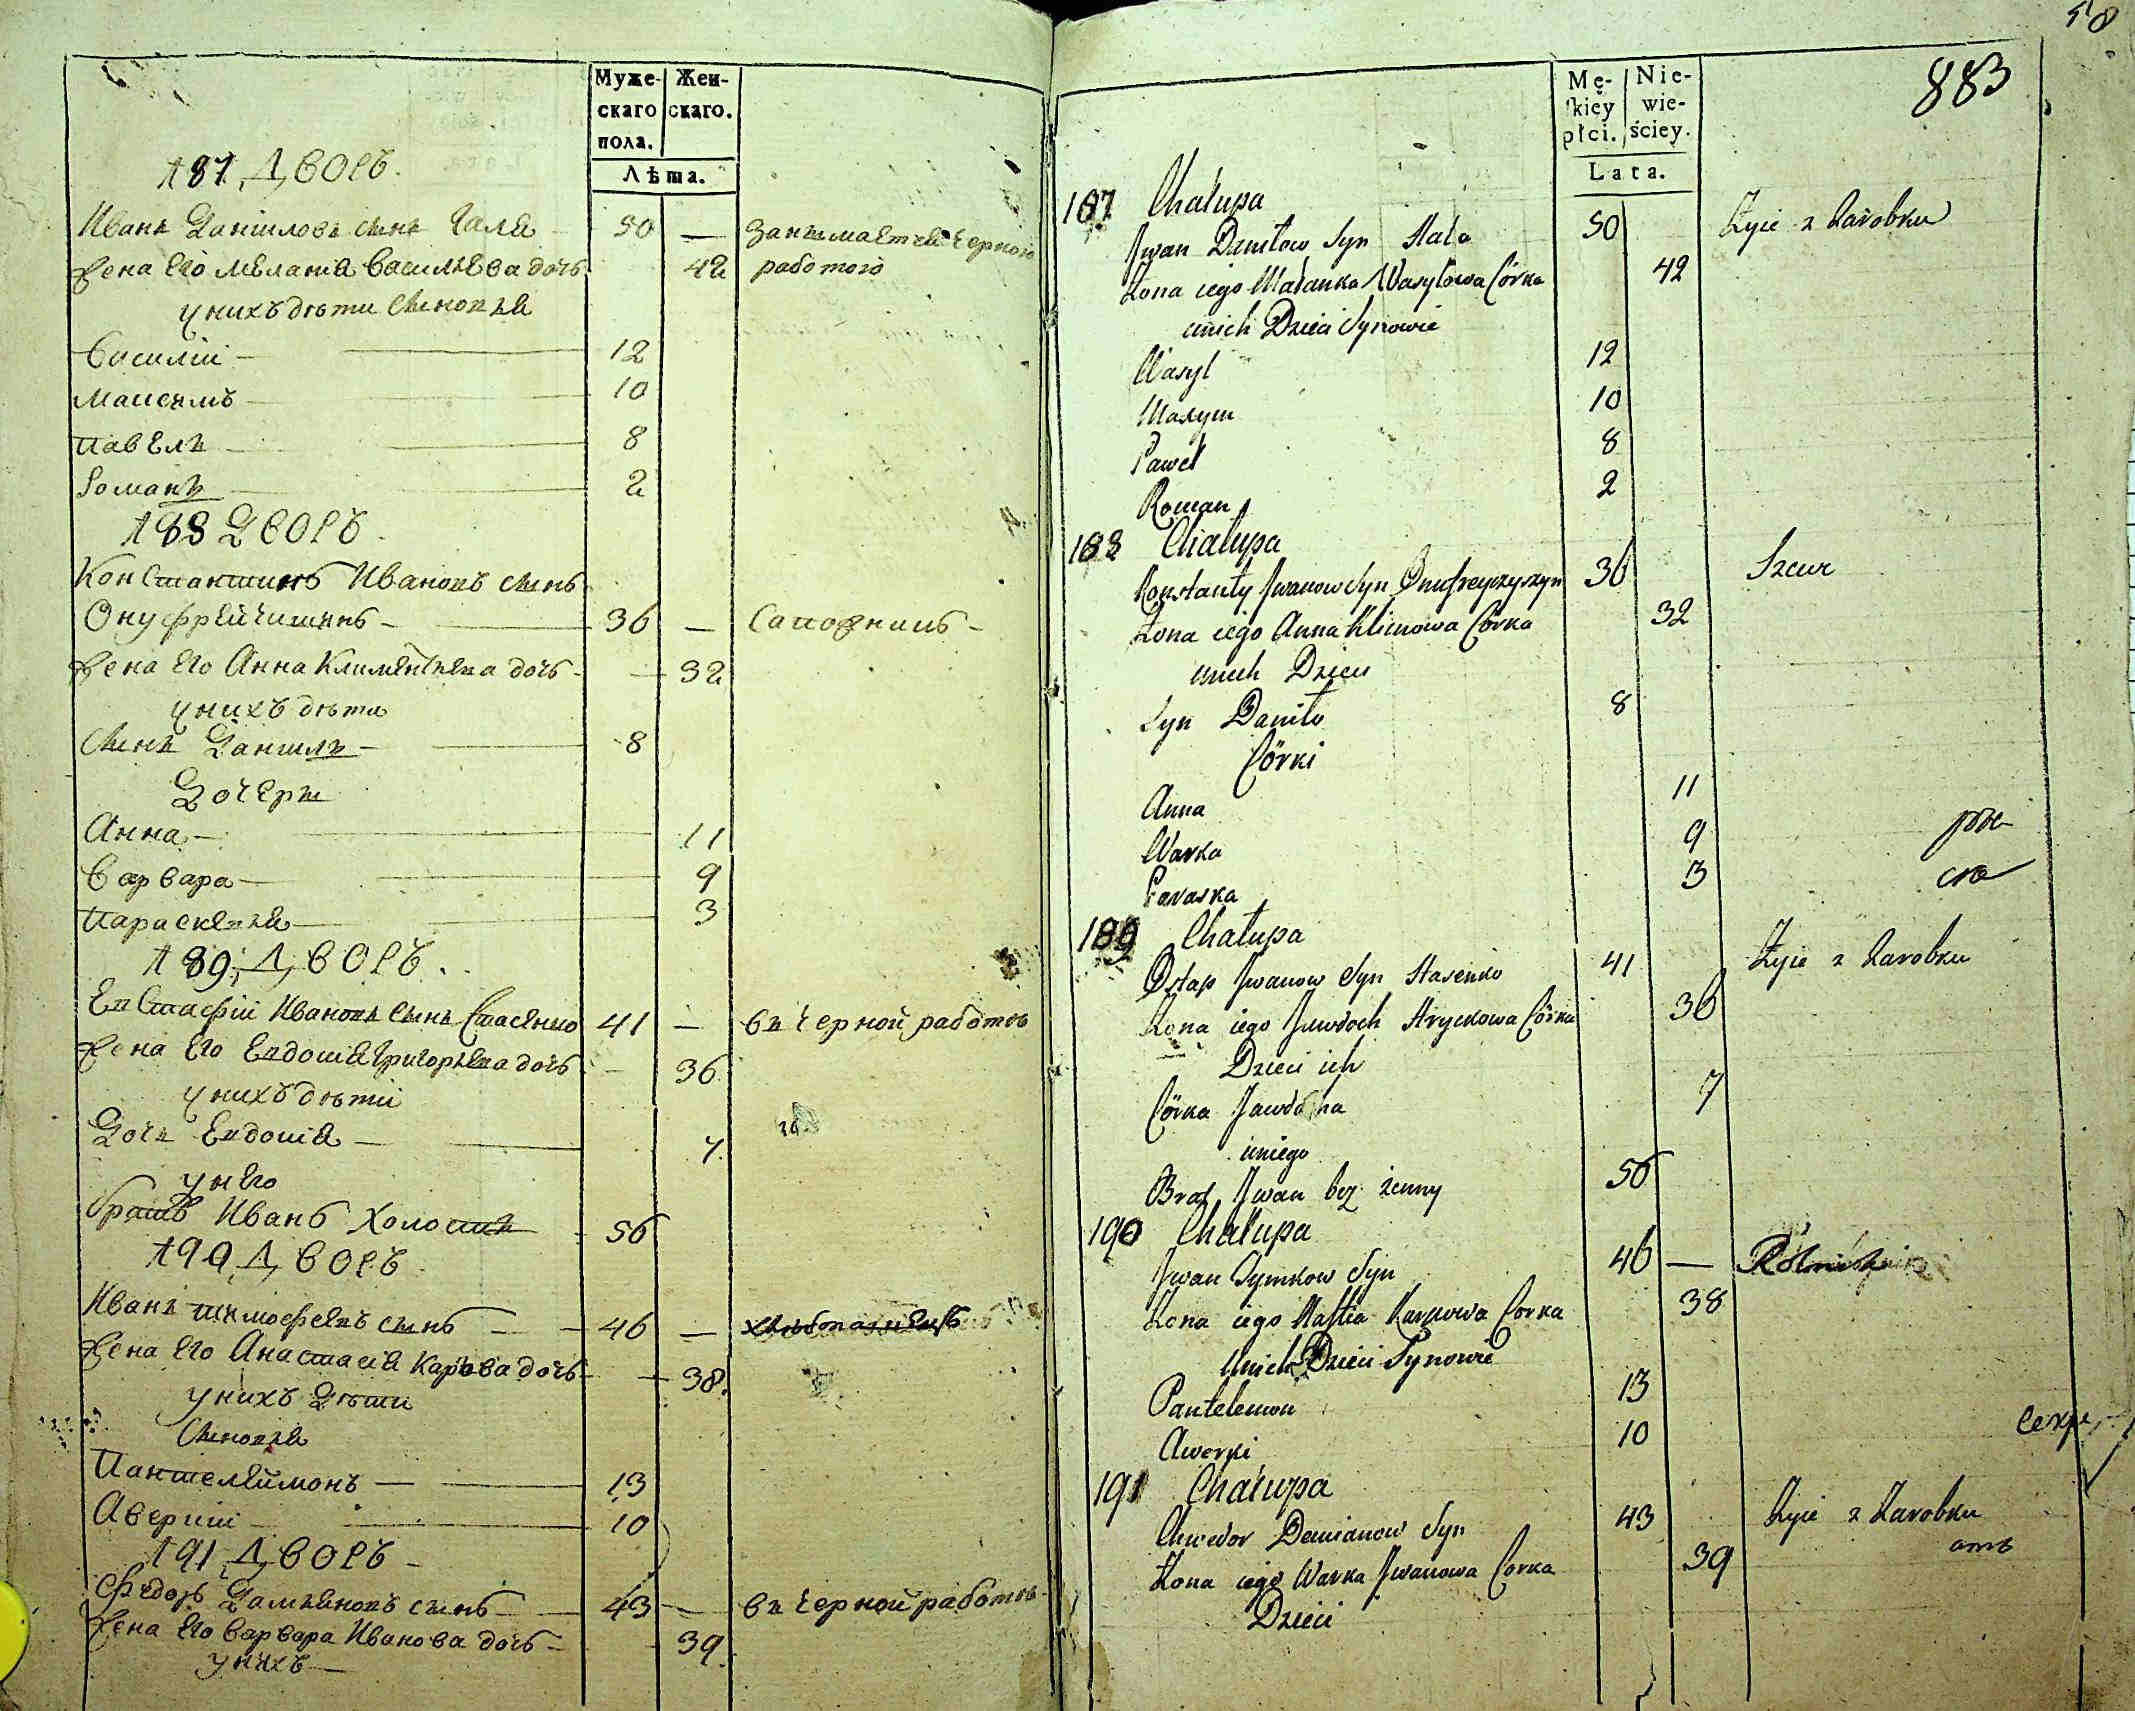 Муже-
скаго
пола.
Жен-
скаго.
Лѣта.
187 Дворъ.
Иванъ Даниловъ сынъ Галя 50 — Занимается черною
Жена его Меланія Васильева дочь 42 работою
у нихъ дѣти сыновья
Василій — 12
Максимъ — 10
Павелъ — 8
Романъ 2
188 Дворъ.
Константинъ Ивановъ сынъ
Онуфрейчишинъ — 36 — Сапожникъ —
Жена его Анна Климентьева дочь — 32
у нихъ дѣти
Сынъ Данилъ — 8
Дочери
Анна — 11
Варвара — 9
Параскевья — 3
189 Дворъ.
Евстафій Ивановъ сынъ Стасенко 41 — въ черной работѣ
Жена его Евдокія Григорьева дочь — 36
у нихъ дѣти
Дочь Евдокія — 7
у него
братъ Иванъ холостъ 56
190 Дворъ
Иванъ Тимофеевъ сынъ — 46 —
Жена его Анастасія Карпова дочь — 38.
у нихъ Дѣти
Сыновья
Пантелеймонъ — 13
Аверкій 10
191 Дворъ —
Федоръ Дамьяновъ сынъ — 43 — въ черной работѣ
Жена его Варвара Иванова дочь — 39
у нихъ —
58
883
Mę-
skiéy
płci.
Nie-
wie-
ściey.
Lata.
187 Chałupa
Jwan Daniłow Syn Hala 50 Żyie z Zarobku
Żona iego Małanka Wasylowa Córka 42
u nich Dzieci Synowie
Wasyl 12
Maxym 10
Paweł 8
Roman 2
188 Chałupa
Konstanty Jwanow Syn Onufreyczyszyn 36 Szewc
Żona iego Anna Klimowa Córka 32
u nich Dzieci
Syn Daniło 8
Córki
Anna 11
Warka 9
Paraska 3
189 Chałupa
Ostap Jwanow Syn Stasenko 41 Żyie z Zarobku
Żona iego Jawdoch Hryckowa Córka 36
Dzieci ich
Córka Jawdocha 7
u niego
Brat Jwan bez żenny 56
190 Chałupa
Jwan Tymkow Syn 46 — Rolnik
Żona iego Nastia Karpowa Corka 38
u nich Dzieci Synowie
Pantelemon 13
Awerki 10
191 Chałupa
Chwedor Demianow Syn 43 Żyie z Zarobku
Żona iego Warka Jwanowa Corka 39
Dzieci